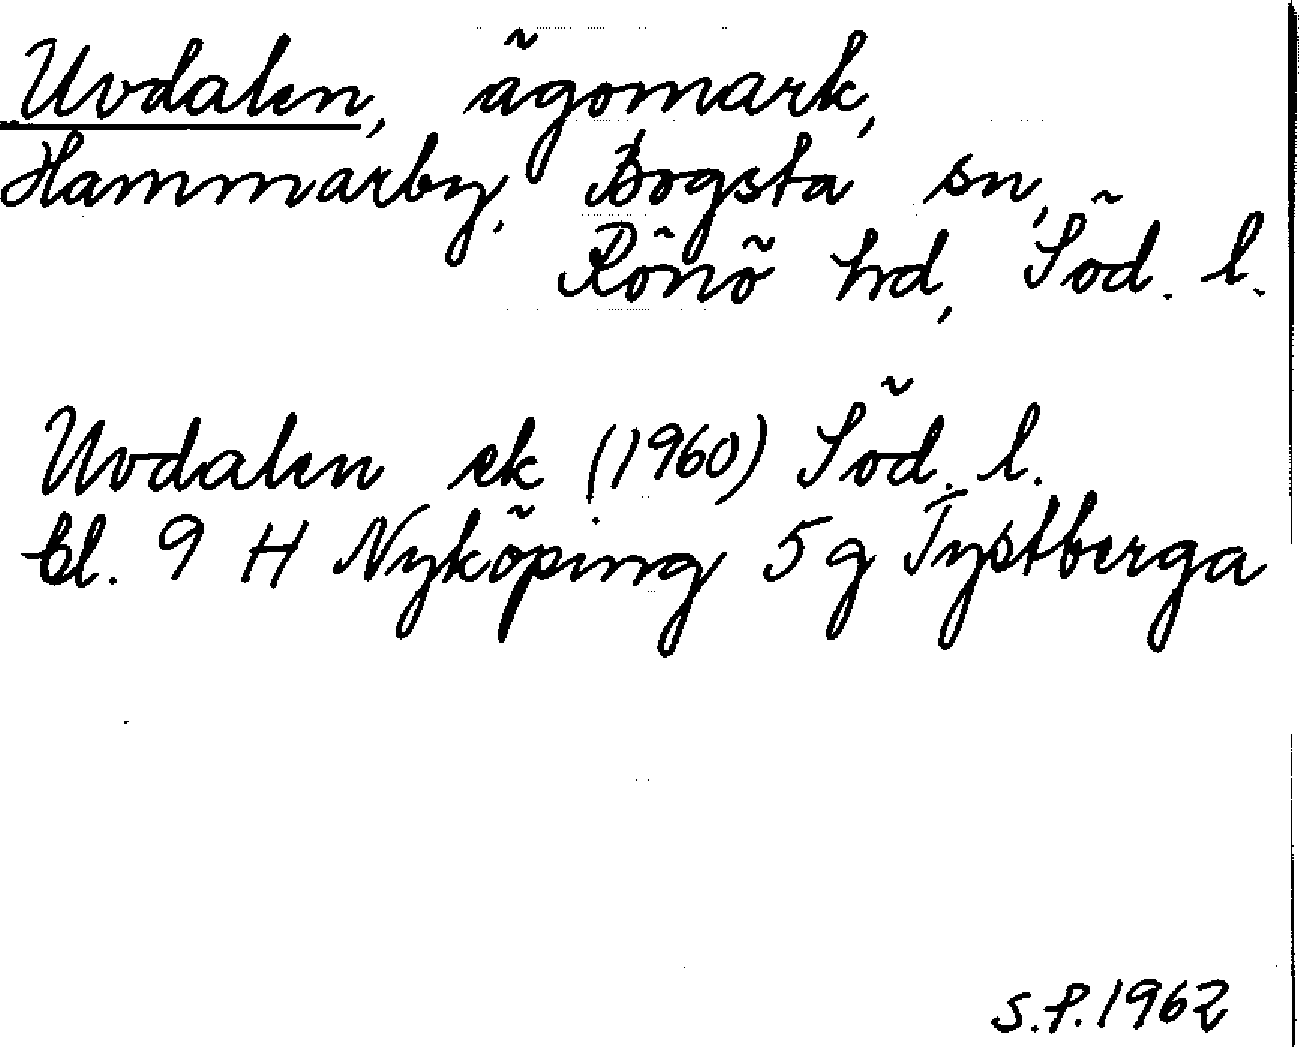 Uvdalen, ägomark,
Hammarby, Bogsta sn,
Rönö hd, Söd. l.
Uvdalen ek (1960) Söd. l.
bl. 9 H Nyköping 5 g Tystberga
S.P. 1962